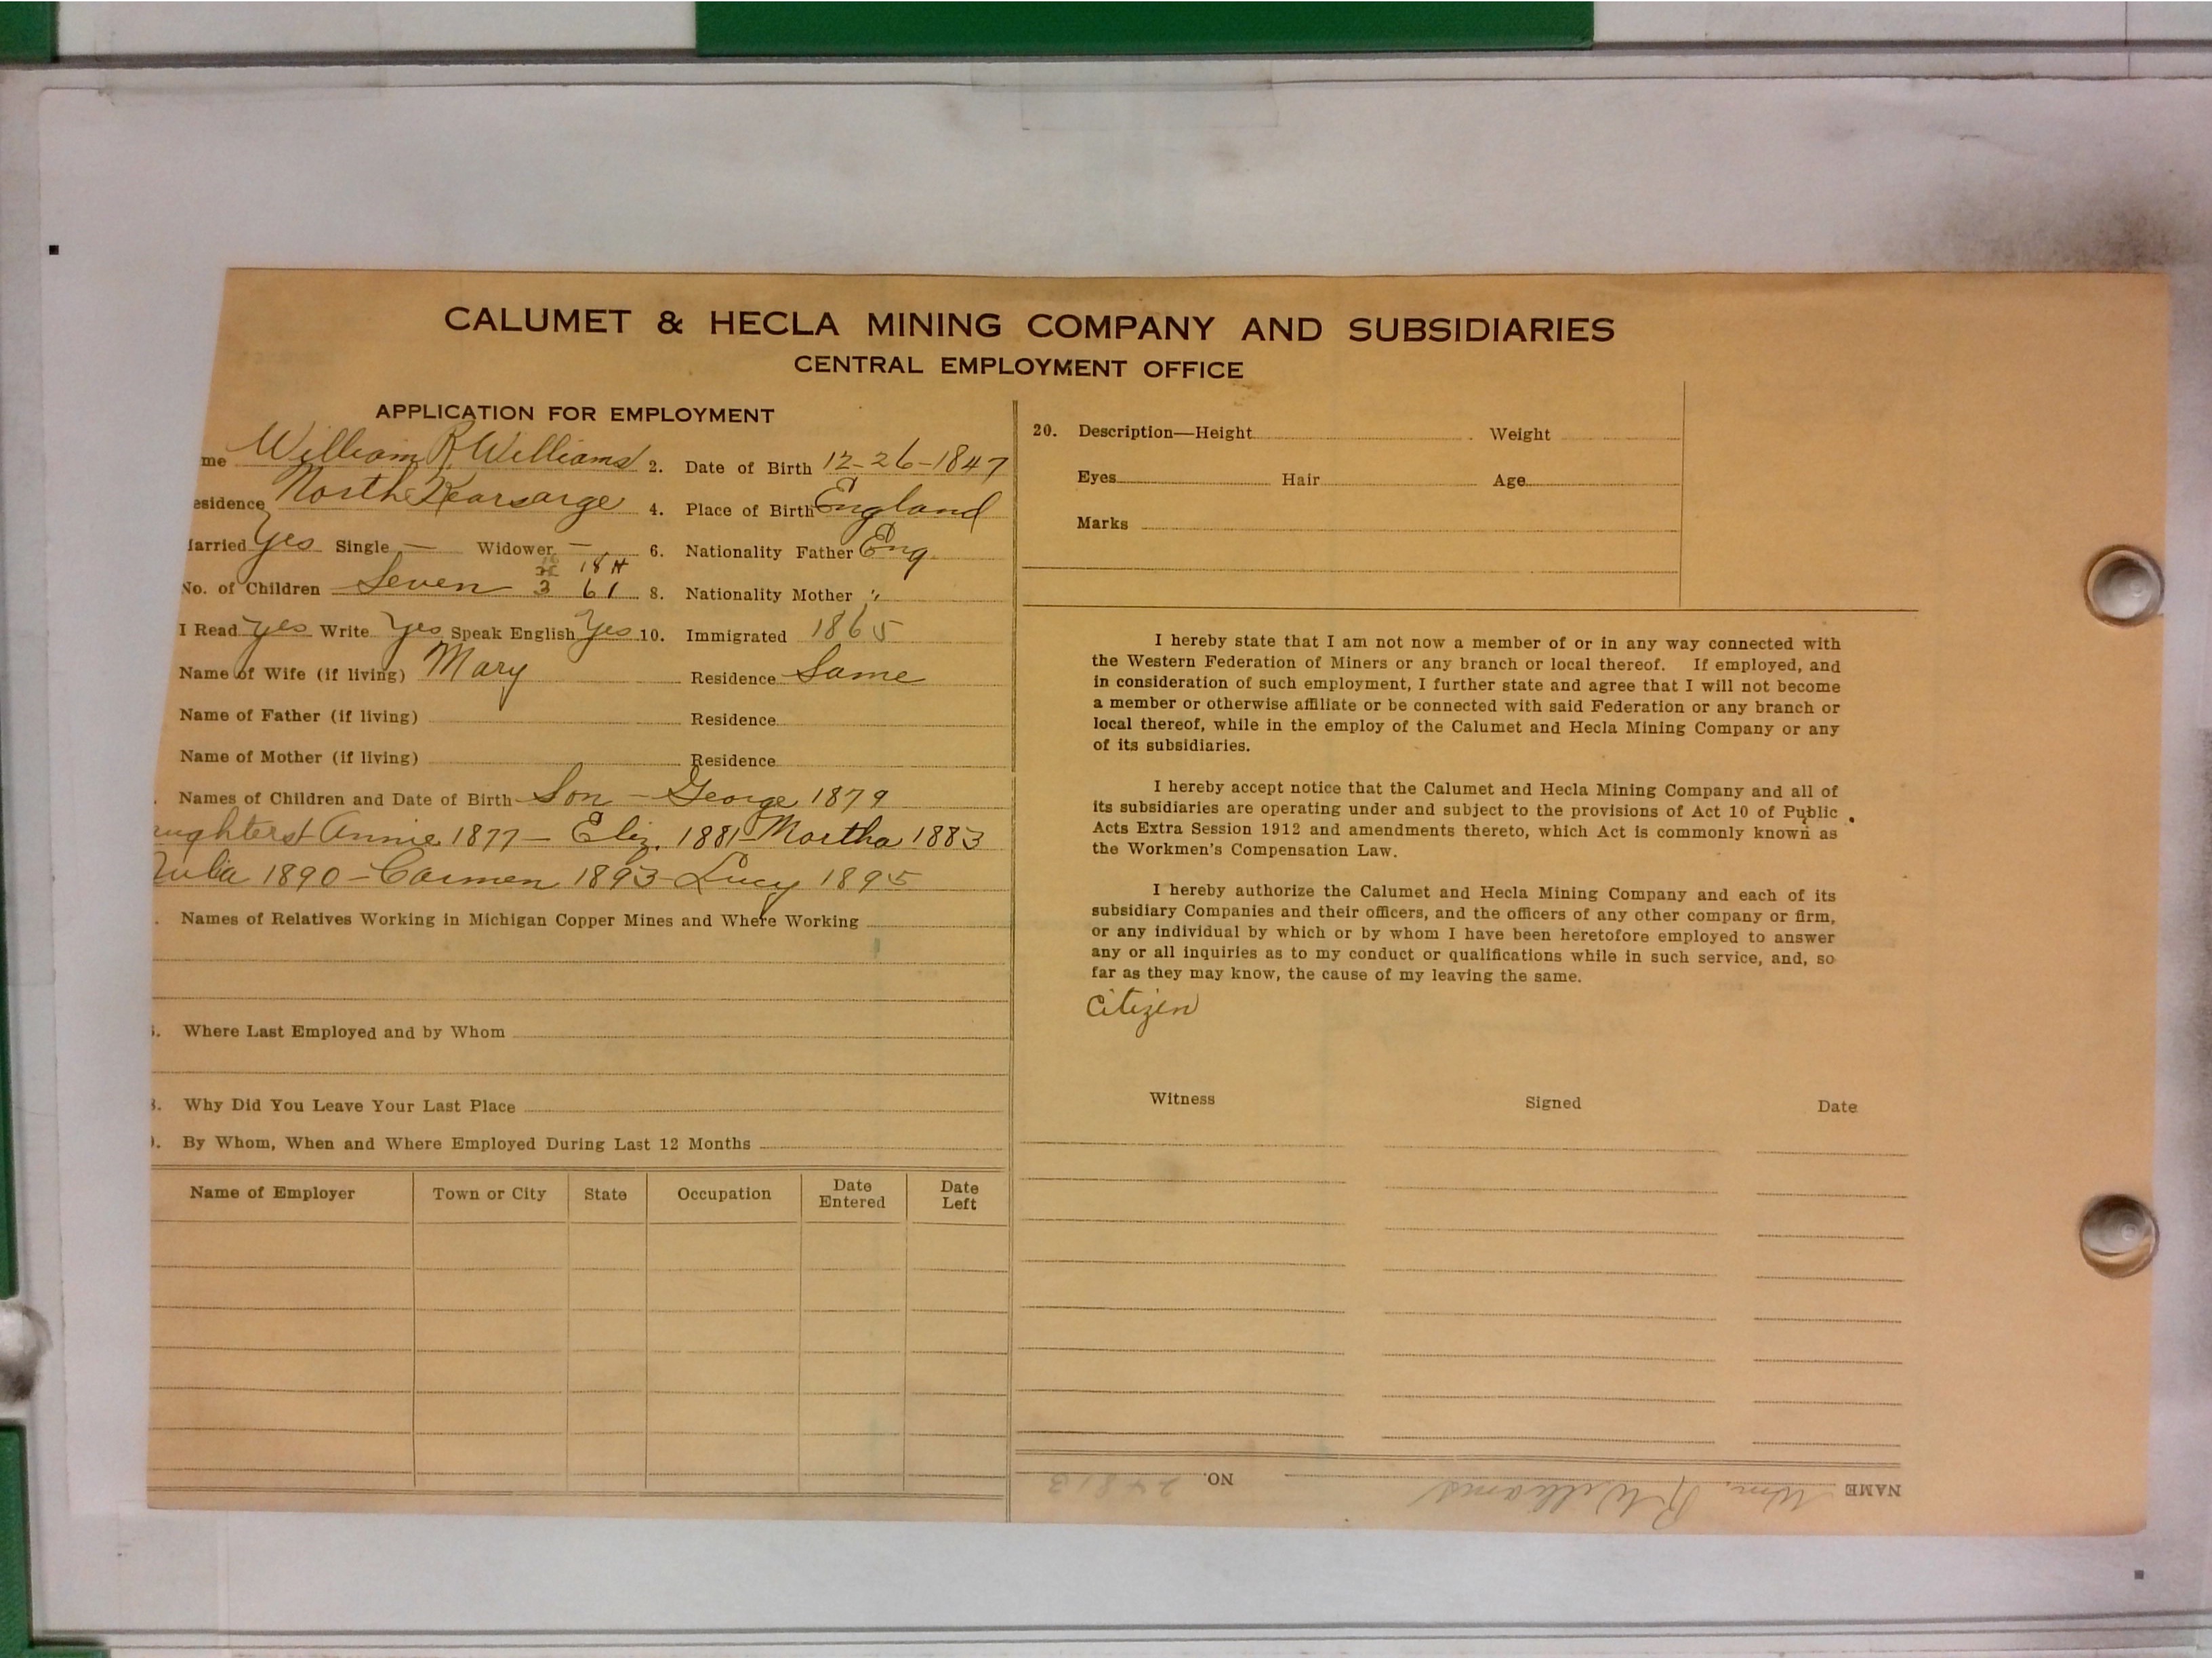 CALUMET & HECLA MINING COMPANY AND SUBSIDIARIES
CENTRAL EMPLOYMENT OFFICE
APPLICATION FOR EMPLOYMENT
me William R. Williams 2. Date of Birth 12-26-1847
esidence North Kearsarge 4. Place of Birth England
arried Yes Single — Widower — 6. Nationality Father Eng
18
No. of Children Seven 3 61 8. Nationality Mother "
I Read yes Write Yes Speak English Yes 10. Immigrated 1865
Name of Wife (if living) Mary Residence Same
Name of Father (if living) Residence
Name of Mother (if living) Residence
. Names of Children and Date of Birth Son - George 1879
ughters Annie 1877 - Eliz. 1881 - Martha 1883
Julia 1890 - Carmen 1893 - Lucy 1895
. Names of Relatives Working in Michigan Copper Mines and Where Working
. Where Last Employed and by Whom
. Why Did You Leave Your Last Place
. By Whom, When and Where Employed During Last 12 Months
Name of Employer Town or City State Occupation Date Entered Date Left
20. Description—Height Weight
Eyes Hair Age
Marks
I hereby state that I am not now a member of or in any way connected with
the Western Federation of Miners or any branch or local thereof. If employed, and
in consideration of such employment, I further state and agree that I will not become
a member or otherwise affiliate or be connected with said Federation or any branch or
local thereof, while in the employ of the Calumet and Hecla Mining Company or any
of its subsidiaries.
I hereby accept notice that the Calumet and Hecla Mining Company and all of
its subsidiaries are operating under and subject to the provisions of Act 10 of Public
Acts Extra Session 1912 and amendments thereto, which Act is commonly known as
the Workmen's Compensation Law.
I hereby authorize the Calumet and Hecla Mining Company and each of its
subsidiary Companies and their officers, and the officers of any other company or firm,
or any individual by which or by whom I have been heretofore employed to answer
any or all inquiries as to my conduct or qualifications while in such service, and, so
far as they may know, the cause of my leaving the same.
Citizen
Witness Signed Date
NAME Wm. R Williams NO.